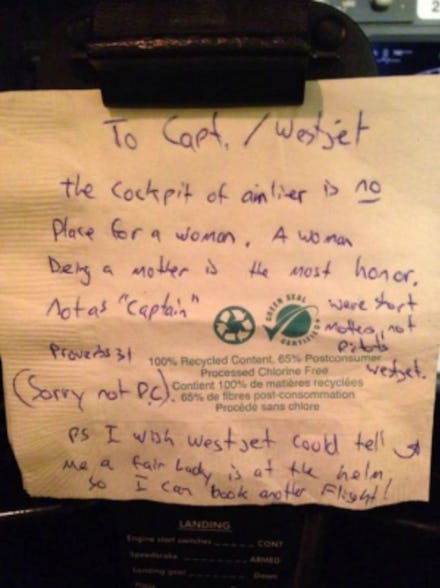 To Capt. / Westjet
the cockpit of airliner is no
Place for a woman. A woman
being a mother is the most honor.
Not as "captain"
were short
mothers, not
pilots
westjet.
GREEN SEAL
CERTIFIED
Proverbs 31
(Sorry not P.C.)
100% Recycled Content, 65% Postconsumer
Processed Chlorine Free
Contient 100% de matières recyclées
65% de fibres post-consommation
Procédé sans chlore
PS I wish westjet could tell
me a fair Lady is at the helm
So I can book another Flight!
LANDING
Engine start switches ______ CONT
Speedbrake ______ ARMED
Landing gear ______ Down
2